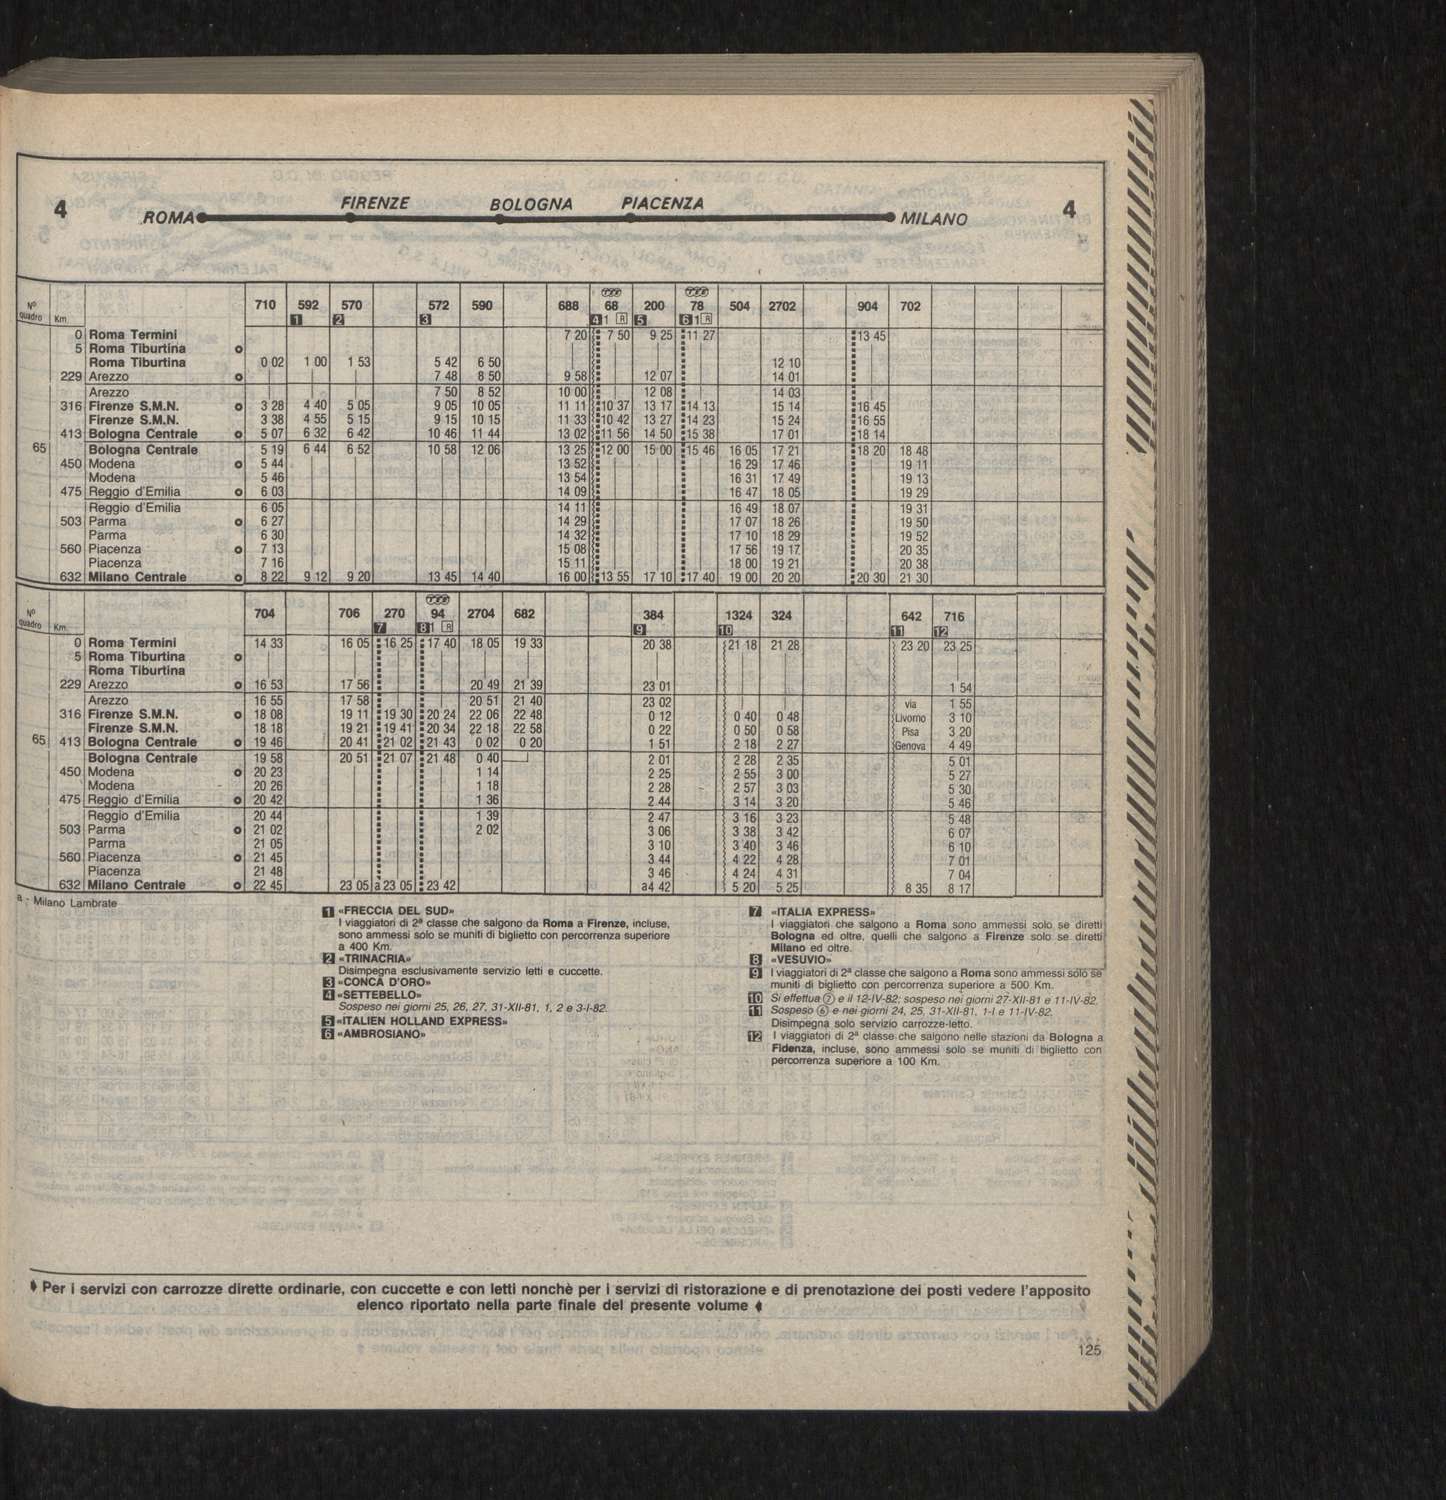 4 ROMA FIRENZE BOLOGNA PIACENZA MILANO 4
Nº quadro Km. 710 592 570 572 590 688 68 200 78 504 2702 904 702
1 2 3 4 1 R 5 6 1 R
0 Roma Termini 7 20 7 50 9 25 11 27 13 45
5 Roma Tiburtina
Roma Tiburtina 0 02 1 00 1 53 5 42 6 50 12 10
229 Arezzo 7 48 8 50 9 58 12 07 14 01
Arezzo 7 50 8 52 10 00 12 08 14 03
316 Firenze S.M.N. 3 28 4 40 5 05 9 05 10 05 11 11 10 37 13 17 14 13 15 14 16 45
Firenze S.M.N. 3 38 4 55 5 15 9 15 10 15 11 33 10 42 13 27 14 23 15 24 16 55
413 Bologna Centrale 5 07 6 32 6 42 10 46 11 44 13 02 11 56 14 50 15 38 17 01 18 14
65 Bologna Centrale 5 19 6 44 6 52 10 58 12 06 13 25 12 00 15 00 15 46 16 05 17 21 18 20 18 48
450 Modena 5 44 13 52 16 29 17 46 19 11
Modena 5 46 13 54 16 31 17 49 19 13
475 Reggio d'Emilia 6 03 14 09 16 47 18 05 19 29
Reggio d'Emilia 6 05 14 11 16 49 18 07 19 31
503 Parma 6 27 14 29 17 07 18 26 19 50
Parma 6 30 14 32 17 10 18 29 19 52
560 Piacenza 7 13 15 08 17 56 19 17 20 35
Piacenza 7 16 15 11 18 00 19 21 20 38
632 Milano Centrale 8 22 9 12 9 20 13 45 14 40 16 00 13 55 17 10 17 40 19 00 20 20 20 30 21 30
Nº quadro Km. 704 706 270 94 2704 682 384 1324 324 642 716
7 8 1 R 9 10 11 12
0 Roma Termini 14 33 16 05 16 25 17 40 18 05 19 33 20 38 21 18 21 28 23 20 23 25
5 Roma Tiburtina
Roma Tiburtina
229 Arezzo 16 53 17 56 20 49 21 39 23 01 1 54
Arezzo 16 55 17 58 20 51 21 40 23 02 via 1 55
316 Firenze S.M.N. 18 08 19 11 19 30 20 24 22 06 22 48 0 12 0 40 0 48 Livorno 3 10
Firenze S.M.N. 18 18 19 21 19 41 20 34 22 18 22 58 0 22 0 50 0 58 Pisa 3 20
65 413 Bologna Centrale 19 46 20 41 21 02 21 43 0 02 0 20 1 51 2 18 2 27 Genova 4 49
Bologna Centrale 19 58 20 51 21 07 21 48 0 40 2 01 2 28 2 35 5 01
450 Modena 20 23 1 14 2 25 2 55 3 00 5 27
Modena 20 26 1 18 2 28 2 57 3 03 5 30
475 Reggio d'Emilia 20 42 1 36 2 44 3 14 3 20 5 46
Reggio d'Emilia 20 44 1 39 2 47 3 16 3 23 5 48
503 Parma 21 02 2 02 3 06 3 38 3 42 6 07
Parma 21 05 3 10 3 40 3 46 6 10
560 Piacenza 21 45 3 44 4 22 4 28 7 01
Piacenza 21 48 3 46 4 24 4 31 7 04
632 Milano Centrale 22 45 23 05 a 23 05 23 42 a4 42 5 20 5 25 8 35 8 17
a - Milano Lambrate
1 «FRECCIA DEL SUD»
I viaggiatori di 2ª classe che salgono da Roma a Firenze, incluse,
sono ammessi solo se muniti di biglietto con percorrenza superiore
a 400 Km.
2 «TRINACRIA»
Disimpegna esclusivamente servizio letti e cuccette.
3 «CONCA D'ORO»
4 «SETTEBELLO»
Sospeso nei giorni 25, 26, 27, 31-XII-81, 1, 2 e 3-I-82.
5 «ITALIEN HOLLAND EXPRESS»
6 «AMBROSIANO»
7 «ITALIA EXPRESS»
I viaggiatori che salgono a Roma sono ammessi solo se diretti
Bologna ed oltre, quelli che salgono a Firenze solo se diretti
Milano ed oltre.
8 «VESUVIO»
9 I viaggiatori di 2ª classe che salgono a Roma sono ammessi solo se
muniti di biglietto con percorrenza superiore a 500 Km.
10 Si effettua ⑦ e il 12-IV-82; sospeso nei giorni 27-XII-81 e 11-IV-82.
11 Sospeso ⑥ e nei giorni 24, 25, 31-XII-81, 1-I e 11-IV-82.
Disimpegna solo servizio carrozze-letto.
12 I viaggiatori di 2ª classe che salgono nelle stazioni da Bologna a
Fidenza, incluse, sono ammessi solo se muniti di biglietto con
percorrenza superiore a 100 Km.
Per i servizi con carrozze dirette ordinarie, con cuccette e con letti nonchè per i servizi di ristorazione e di prenotazione dei posti vedere l'apposito
elenco riportato nella parte finale del presente volume
125